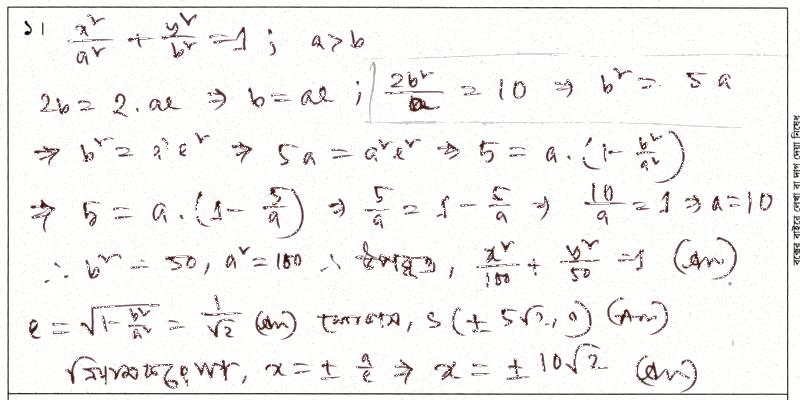 ১। x²/a² + y²/b² = 1 ; a > b
2b = 2.ae ⇒ b = ae ; 2b²/a = 10 ⇒ b² = 5a
⇒ b² = a²e² ⇒ 5a = a²e² ⇒ 5 = a.(1 - b²/a²)
⇒ 5 = a.(1 - 5/a) ⇒ 5/a = 1 - 5/a ⇒ 10/a = 1 ⇒ a = 10
∴ b² = 50, a² = 100 ∴ উপবৃত্ত, x²/100 + y²/50 = 1 (Ans)
e = √(1 - b²/a²) = 1/√2 (Ans) ফোকাস, S (± 5√2, 0) (Ans)
x = ± a/e ⇒ x = ± 10√2 (Ans)
বক্সের বাইরে লেখা বা দাগ দেয়া নিষেধ